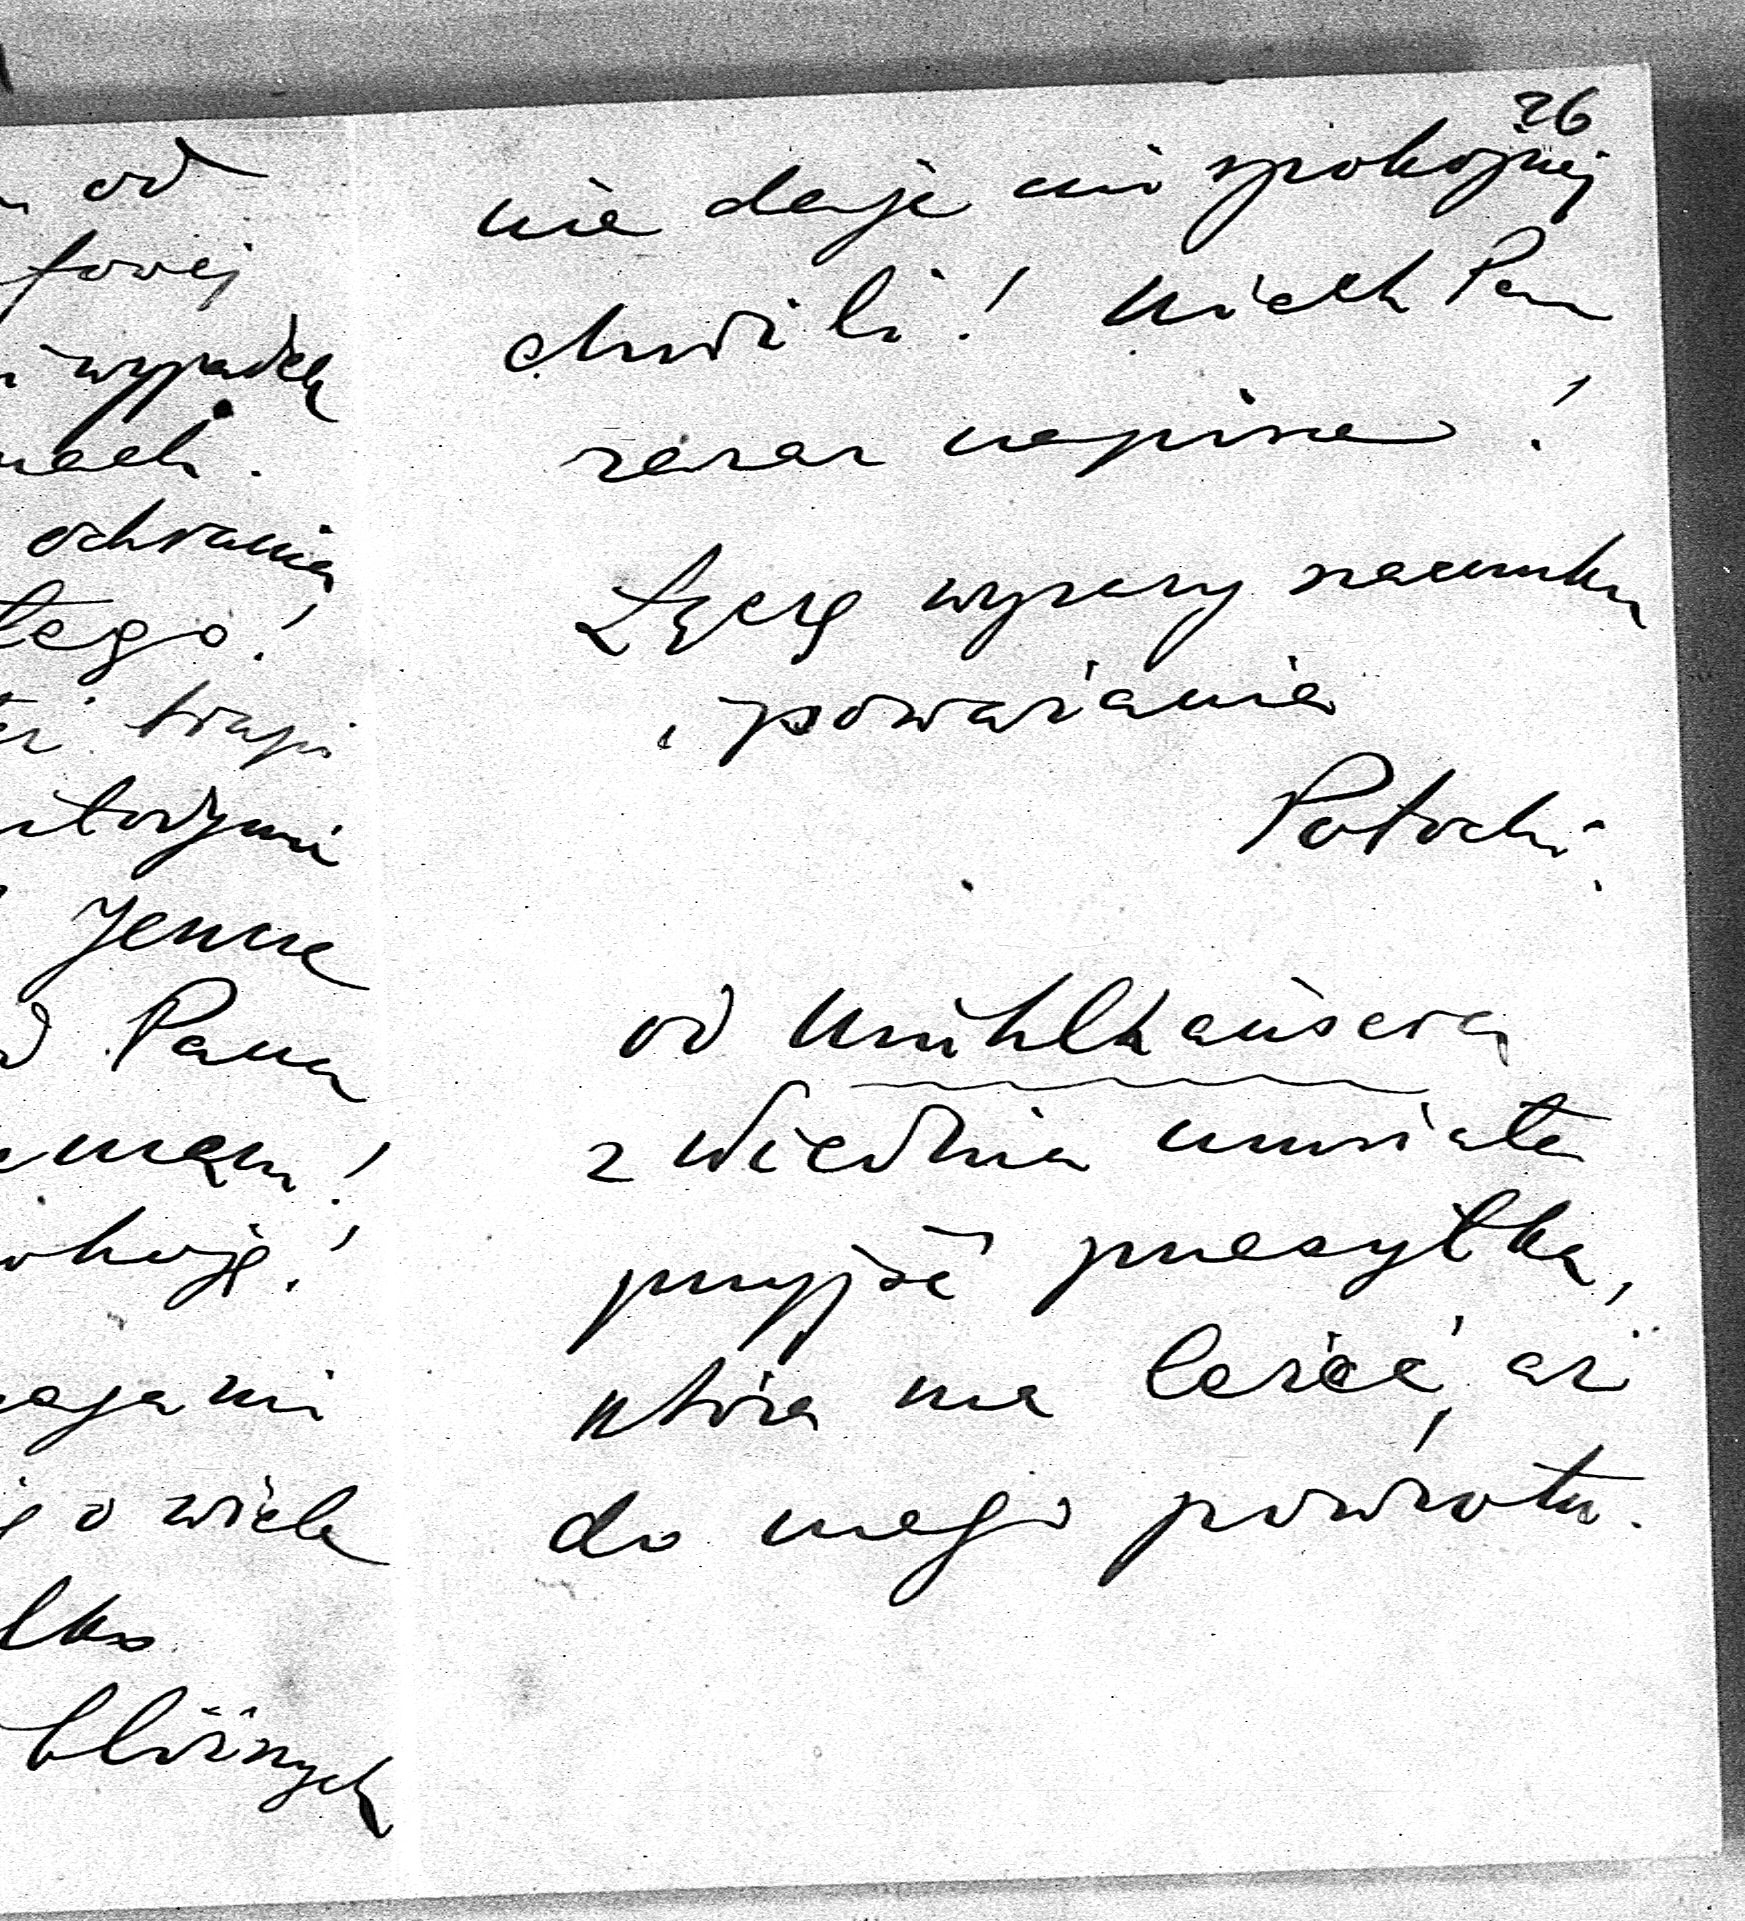 od
fowej
wypadek
nach.
ochrania
tego!
trapi
Jenne
Pana
mam!
o wiele
bliźnych
26
nie daje mi spokojnej
chwili! Niech Pan
zaraz napisze!
Łączę wyrazy szacunku
i poważania
Potocki.
od Mühlhausera
z Wiednia musiała
przyjść przesyłka,
która ma leżeć, aż
do mego powrotu.